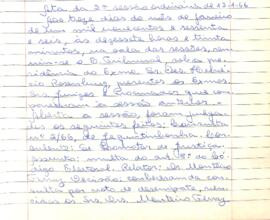 Ata da 2ª sessão ordinária de 13-1-66
Aos treze dias do mês de janeiro
de um mil novecentos e sessenta
e seis, às dezessete horas e trinta
minutos, na sala das sessões, reu-
niu-se o Tribunal, sob a pre-
sidência do Exmo Sr. Des.
presentes os Exmos
Srs. Juízes e Procurador que com-
pareceram à sessão anterior.
Aberta a sessão, foram julga-
dos os seguintes feitos: Consulta
nº 2/65, de Jequitinhonha. Con-
sulente: Promotor de Justiça.
Assunto: multa do art. 8º do Có-
digo Eleitoral. Relator: Dr.
Decisão: conheceram da con-
sulta por voto de desempate, ven-
cidos os Srs. Drs.